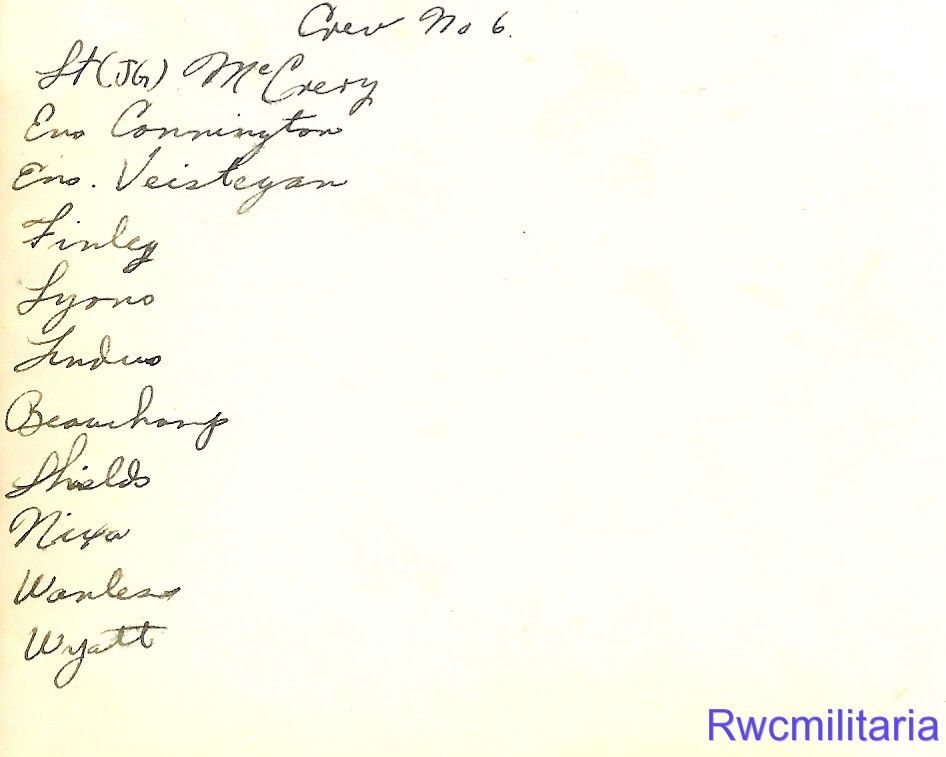 Crew No 6.
Lt(JG) McCrery
Ens Connington
Ens. Veisteyan
Finley
Lyons
Landus
Beauchamp
Shields
Nixa
Wanless
Wyatt
Rwcmilitaria